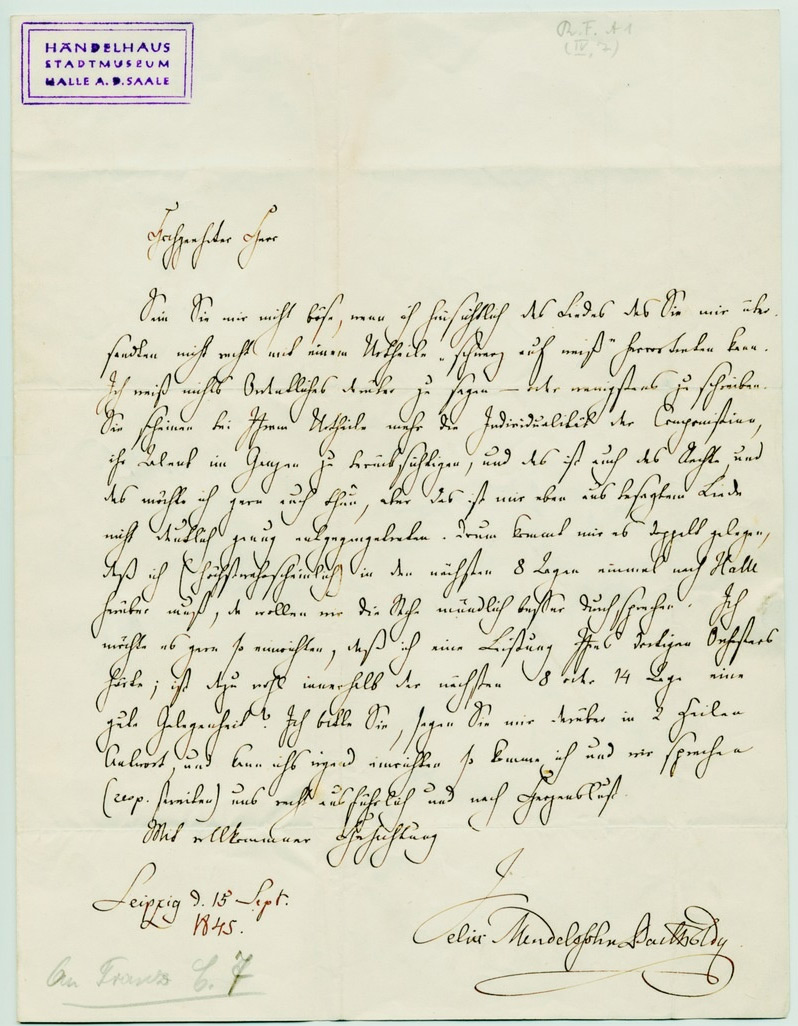 HÄNDELHAUS
STADTMUSEUM
HALLE A. D. SAALE
R. F. A 1
(IV, 7)
Hochgeehrter Herr
Sein Sie mir nicht böse, wenn ich hinsichtlich des Liedes das Sie mir über-
sendten nicht recht mit einem Urtheile „schwarz auf weiß" hervortreten kann.
Ich weiß nichts Ordentliches darüber zu sagen — oder wenigstens zu schreiben.
Sie scheinen bei Ihrem Urtheile mehr die Individualität der Componistinn,
ihr Talent im Ganzen zu berücksichtigen, und das ist auch das Rechte und
das möchte ich gern auch thun, aber das ist mir eben aus besagtem Liede
nicht deutlich genug entgegengetreten. Drum kommt mir es doppelt gelegen,
daß ich (höchstwahrscheinlich) in den nächsten 8 Tagen einmal nach Halle
herüber muß, da wollen wir die Sache mündlich besser durchsprechen. Ich
möchte es gern so einrichten, daß ich eine Leistung Ihres dortigen Orchesters
hörte; ist dazu wohl innerhalb der nächsten 8 oder 14 Tage eine
gute Gelegenheit? Ich bitte Sie, sagen Sie mir darüber in 2 Zeilen
Antwort, und kann ichs irgend einrichten so komme ich und wir sprechen
(resp. streiten) uns recht ausführlich und nach Herzenslust.
Mit vollkommner Hochachtung
Leipzig d. 15 Sept.
1845.
Felix Mendelssohn Bartholdy
An Franz C. 7